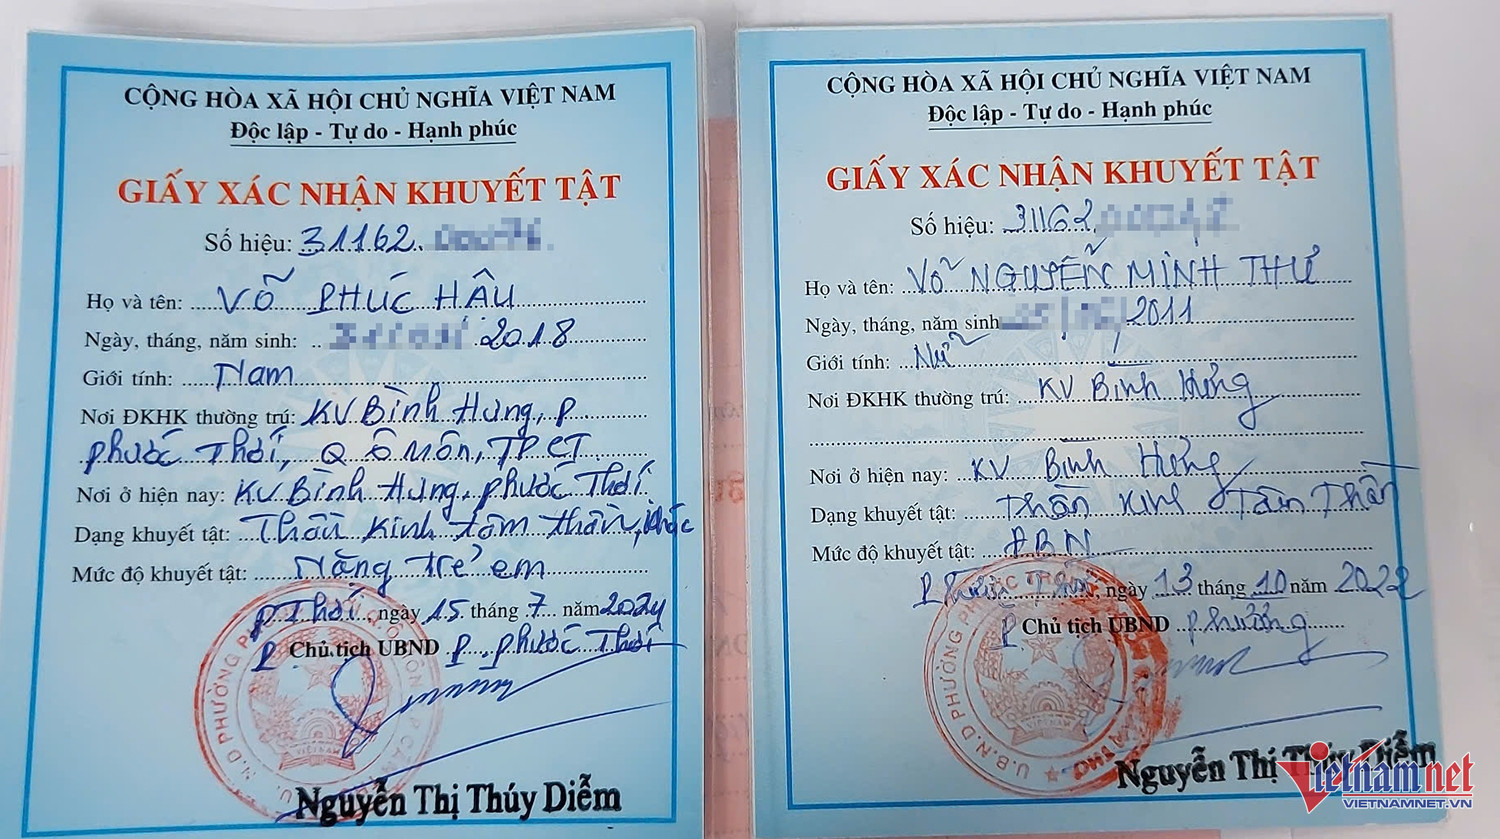 CỘNG HÒA XÃ HỘI CHỦ NGHĨA VIỆT NAM
Độc lập - Tự do - Hạnh phúc
GIẤY XÁC NHẬN KHUYẾT TẬT
Số hiệu: 31162.
Họ và tên: VÕ PHÚC HÂU
Ngày, tháng, năm sinh: 2018
Giới tính: Nam
Nơi ĐKHK thường trú: KV Bình Hưng, P
phước Thới, Q Ô Môn, TPCT
Nơi ở hiện nay: KV Bình Hưng, phước Thới
Dạng khuyết tật: Thần kinh tâm thần, khác
Mức độ khuyết tật: Nặng trẻ em
P Thới, ngày 15 tháng 7 năm 2024
P Chủ tịch UBND P. phước Thới
Nguyễn Thị Thúy Diễm
CỘNG HÒA XÃ HỘI CHỦ NGHĨA VIỆT NAM
Độc lập - Tự do - Hạnh phúc
GIẤY XÁC NHẬN KHUYẾT TẬT
Số hiệu: 31162
Họ và tên: VÕ NGUYỄN MINH THƯ
Ngày, tháng, năm sinh 2011
Giới tính: Nữ
Nơi ĐKHK thường trú: KV Bình Hưng
Nơi ở hiện nay: KV Bình Hưng
Dạng khuyết tật: Thần Kinh Tâm Thần
Mức độ khuyết tật: ĐBN
Phước Thới, ngày 13 tháng 10 năm 2022
P Chủ tịch UBND Phường
U.B.N.D PHƯỜNG
Nguyễn Thị Thúy Diễm
Vietnamnet
VIETNAMNET.VN